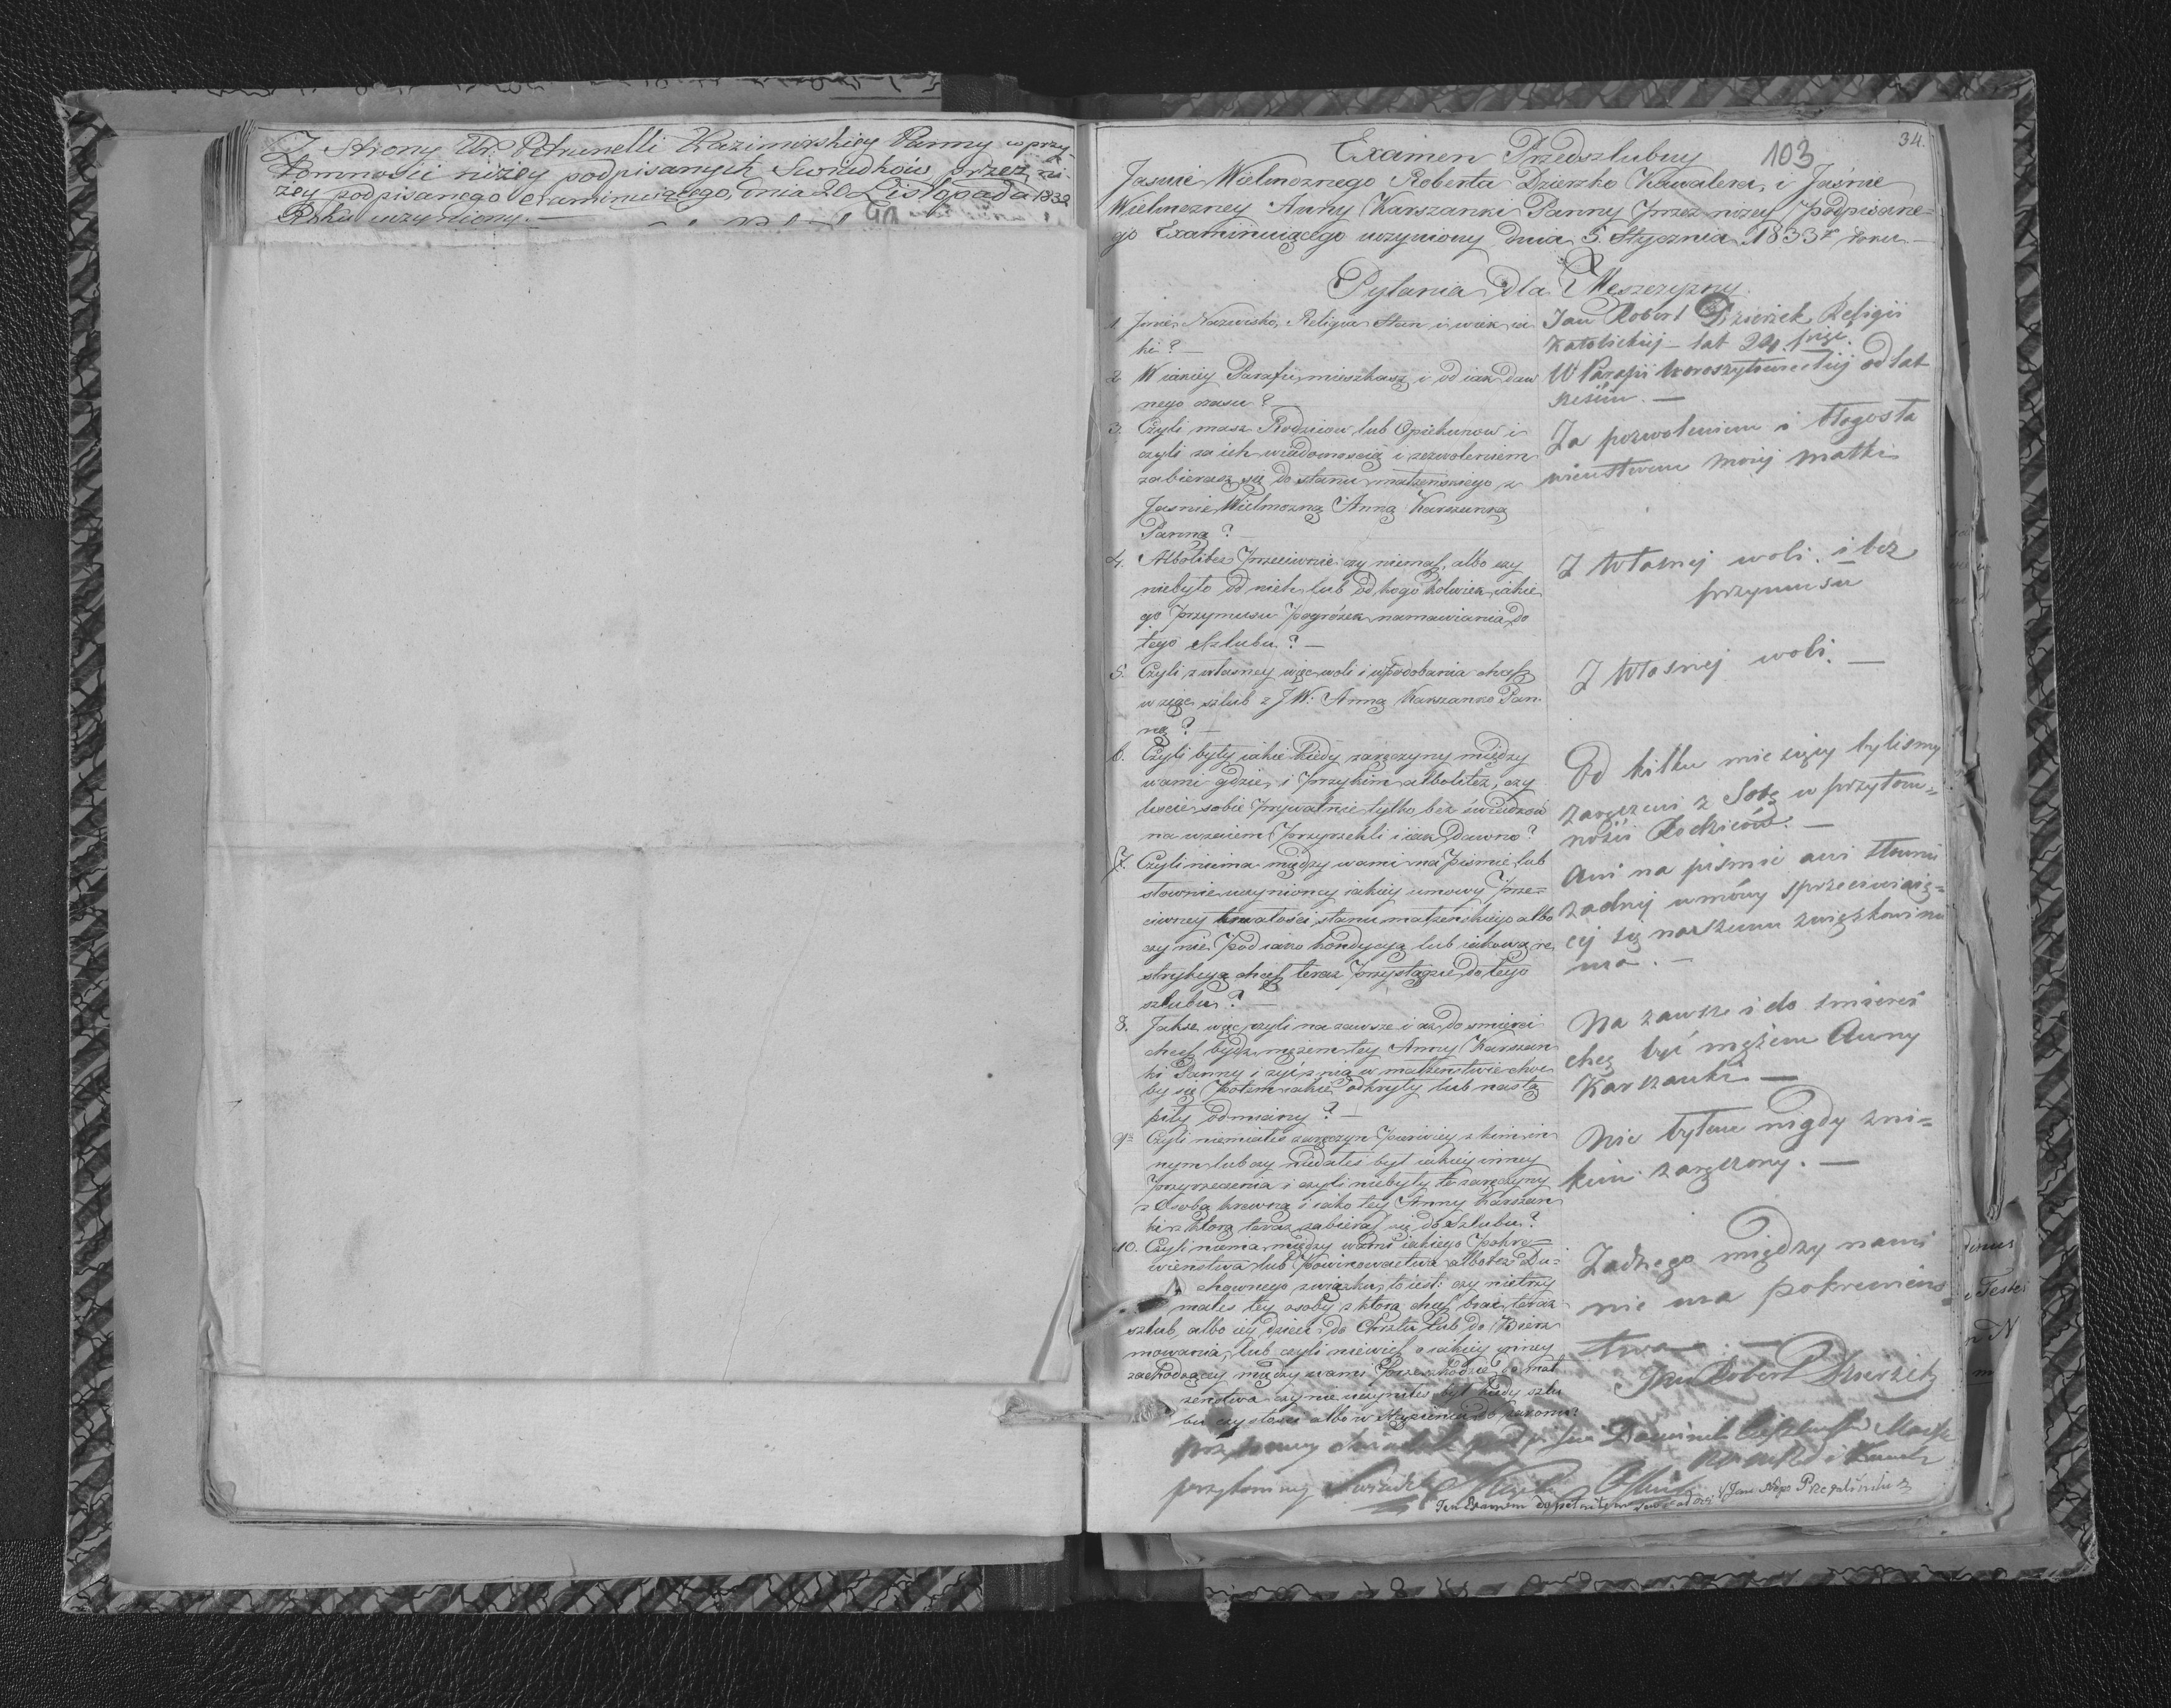 Z Strony Ur: Petrunelli Kazimirskiey Panny w przy-
tomności niżey podpisanych Swiadków przez ni-
żey podpisanego examinuiącego, dnia 20 Listopada 1832
Roku uczyniony. —
34.
103
Examen Przedszlubny
Jasnie Wielmożnego Roberta Dzierżko Kawalera, i Jaśnie
Wielmożney Anny Karszanki Panny przez niżey podpisane-
go Examinuiącego uczyniony dnia 5. Stycznia 1833 roku —
Pytania dla Męszczyzny
1. Jmie, Nazwisko, Religia Stan i wiek ia
ki? —
Jan Robert Dzierżek Religii
Katolickiej — lat 24
2. W iakiey Parafii mieszkasz i od iak daw
nego czasu?
W Parafii od lat
3. Czyli masz Rodzicow lub Opiekunow i
czyli za ich wiadomoscią i zezwoleniem
zabierasz się do stanu małżenskiego z
Jasnie Wielmożną Anną Karszanką
Panną?
Za pozwoleniem i błogosła
wieństwem mojej matki
4. Albolitez przeciwnie czy niemasz, albo czy
niebyło od nich lub od kogo kolwiek iakie
go przymusu pogrózek namawiania do
tego szlubu? —
Z własnej woli i bez
przymusu
5. Czyli z własney więc woli i upodobania chcesz
wziąć szlub z JW: Anną Karszanko Pan-
ną? —
Z własnej woli. —
6. Czyli były iakie kiedy zaręczyny między
wami gdzie i przy kim albolitez, czy
liscie sobie prywatnie tylko bez swiadkow
na wzaiem przyrzekli i iak dawno?
Od kilku miesięcy bylismy
zaręczeni z Sobą w przytom=
ności Rodziców. —
7. Czyli niema między wami na pismie lub
słownie uczynioney iakiey umowy prze=
ciwney trwałości stanu małżeńskiego albo
czy nie pod iako kondycyą lub iakową re
strykcyą chcesz teraz przystąpic do tego
szlubu? —
Ani na pismie ani słownie
żadnej umówy sprzeciwiają=
cej się naszemu związkowi nie
ma. —
8. Takze więc czyli na zawsze i az do smierci
chcesz bydz mężem tey Anny Karszan
ki Panny i żyć z nią w małżenstwie choc
by się potem iakie odkryły lub nastą
piły odmiany? —
Na zawsze i do smierci
chcę być mężem Anny
Karszanki —
9. Czyli niemiałes zaręczyn pierwiey z kim in
nym lub czy niedałes był iakiey inney
przyrzeczenia i czyli niebyły te zaręczyny
z Osobą krewną iako tey Anny Karszan
ki z ktorą teraz zabierasz się do szlubu?
Nie byłem nigdy z ni=
kim zaręczony. —
10. Czyli niema między wami iakiego pokre=
wienstwa lub powinowactwa albotez Du=
chownego związku, to iest: czy nietrzy
małes tey osoby z ktorą chcesz brac teraz
szlub, albo iey dzieci do Chrztu lub do Bierz
mowania, lub czyli niewiesz o iakiey inney
zachodzącey między wami przeszkodzie do mał
żenstwa czy nie uczyniłes był kiedy szlu
bu czystosci albo w stąpienia do zakonu?
Żadnego między nami
nie ma pokrewieńs
twa. —
Jan Robert Dzierżek
przytomny
przytomny Swiadek
Ten Examen dopełniłem